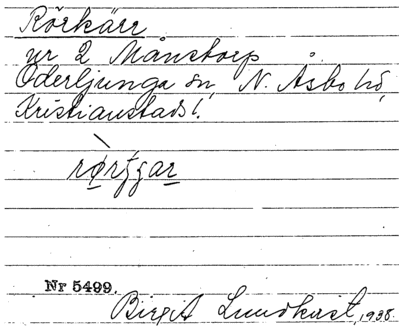 Rörkärr
ur 2 Månstorp
Oderljunga sn, N. Åsbo hd,
Kristianstads l.
Nr 5499.
Birgit Lundkvist, 1938.